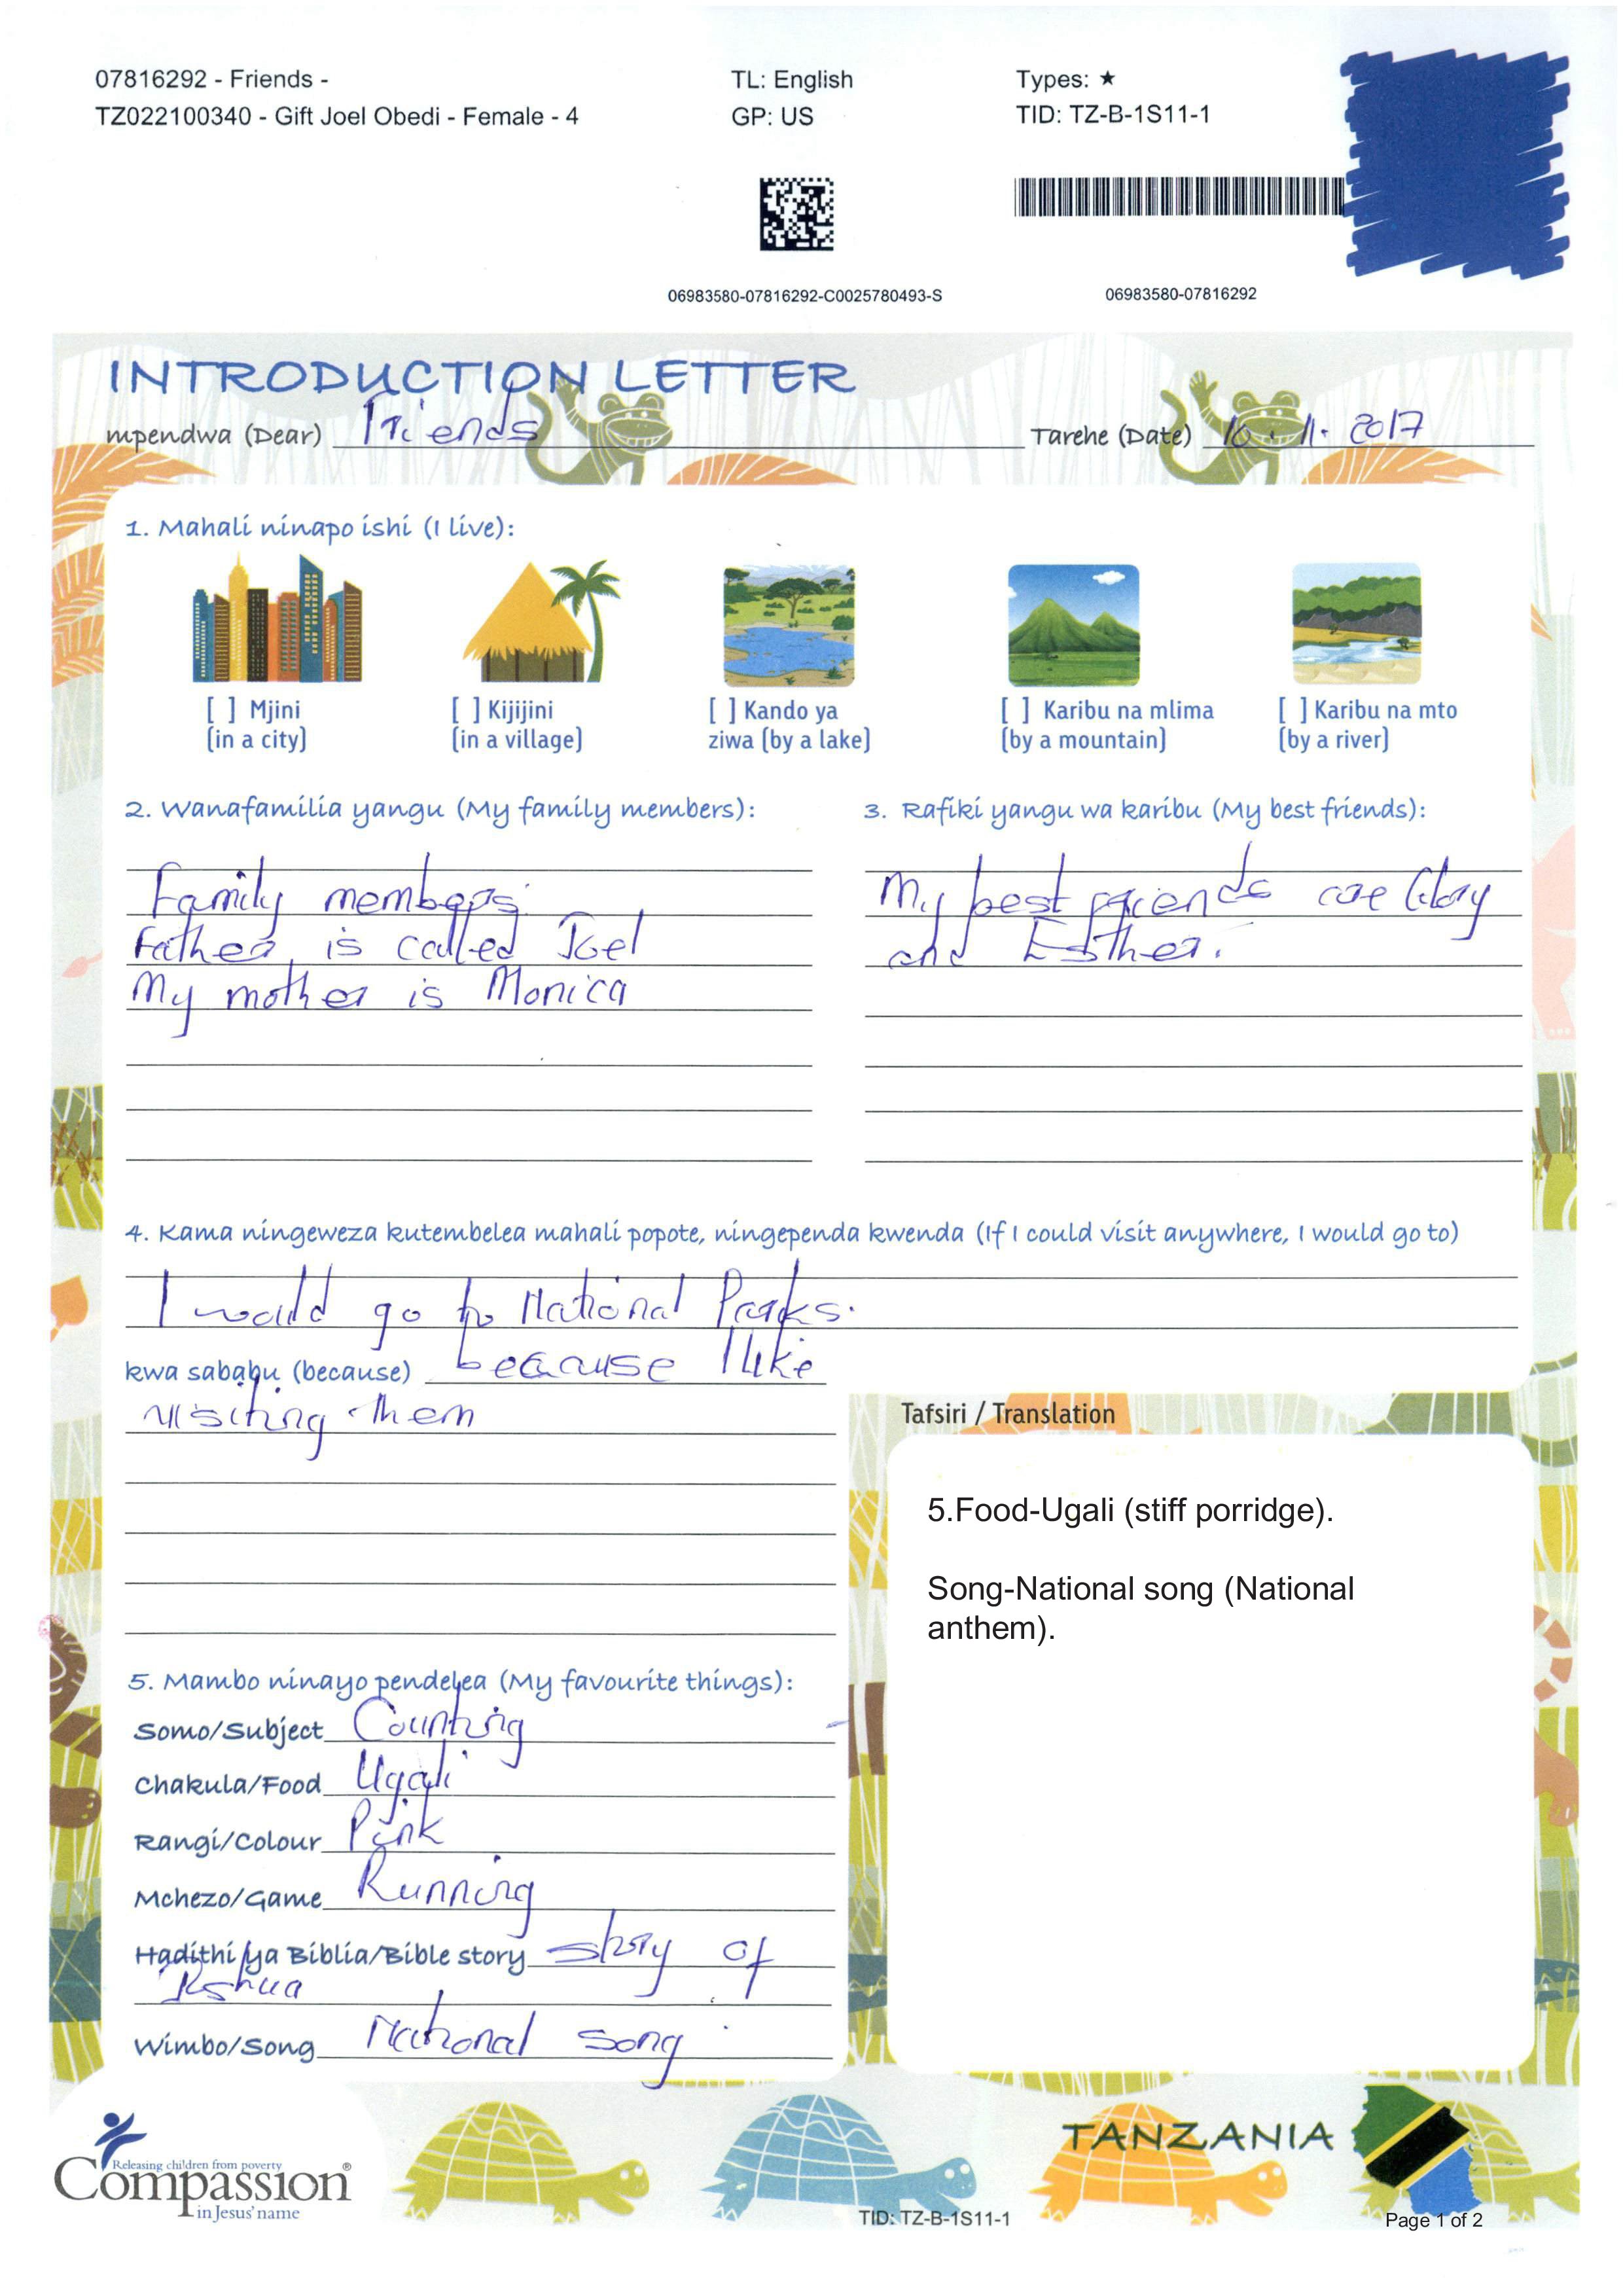 07816292 - Friends -
TZ022100340 - Gift Joel Obedi - Female - 4
TL: English
GP: US
Types: ★
TID: TZ-B-1S11-1
06983580-07816292-C0025780493-S
06983580-07816292
INTRODUCTION LETTER
mpendwa (Dear) Friends
Tarehe (Date) 16.11.2017
1. Mahali ninapo ishi (I live):
[ ] Mjini
(in a city)
[ ] Kijijini
(in a village)
[ ] Kando ya
ziwa (by a lake)
[ ] Karibu na mlima
(by a mountain)
[ ] Karibu na mto
(by a river)
2. Wanafamilia yangu (My family members):
Family members.
Father is called Joel
My mother is Monica
3. Rafiki yangu wa karibu (My best friends):
My best friends are Glory
and Esther.
4. Kama ningeweza kutembelea mahali popote, ningependa kwenda (If I could visit anywhere, I would go to)
I would go to National Parks.
kwa sababu (because) because I like
visiting them
Tafsiri / Translation
5.Food-Ugali (stiff porridge).
Song-National song (National
anthem).
5. Mambo ninayo pendelea (My favourite things):
Somo/Subject Counting
Chakula/Food Ugali
Rangi/Colour Pink
Mchezo/Game Running
Hadithi ya Biblia/Bible story story of
Wimbo/Song National song
Releasing children from poverty
Compassion®
in Jesus' name
TANZANIA
TID: TZ-B-1S11-1
Page 1 of 2